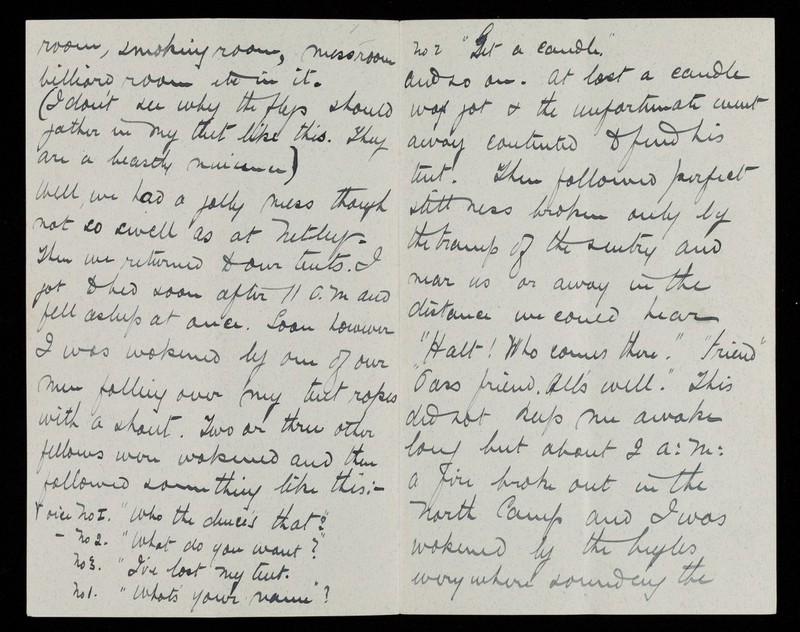 room, smoking room, messroom
billiard room etc in it.
(I don't see why the flys should
gather in my tent like this. They
are a beastly nuicence)
Well, we had a jolly mess though
not so swell as at Netley.
Then we returned to our tents. I
got to bed soon after 11 a.m and
fell asleep at once. Soon however
I was wakened by one of our
men falling over my tent ropes
with a shout. Two or three other
fellows were wakened and then
followed something like this:-
Voice No I. "Who the deuce's that"?
- No 2. "What do you want?"
No 3. "I've lost my tent.
No 1. "Whats your name"?
No 2 "Get a candle."
and so on. At last a candle
was got & the unfortunate went
away contented to find his
tent. Then followed perfect
stillness broken only by
the tramp of the sentry and
near us or away in the
distance we could hear
"Halt! Who comes there." "Friend"
"Pass friend. All's well." This
did not keep me awake
long but about 2 a:m:
a Fire broke out in the
North Camp and I was
wakened by the bugles
everywhere sounding the